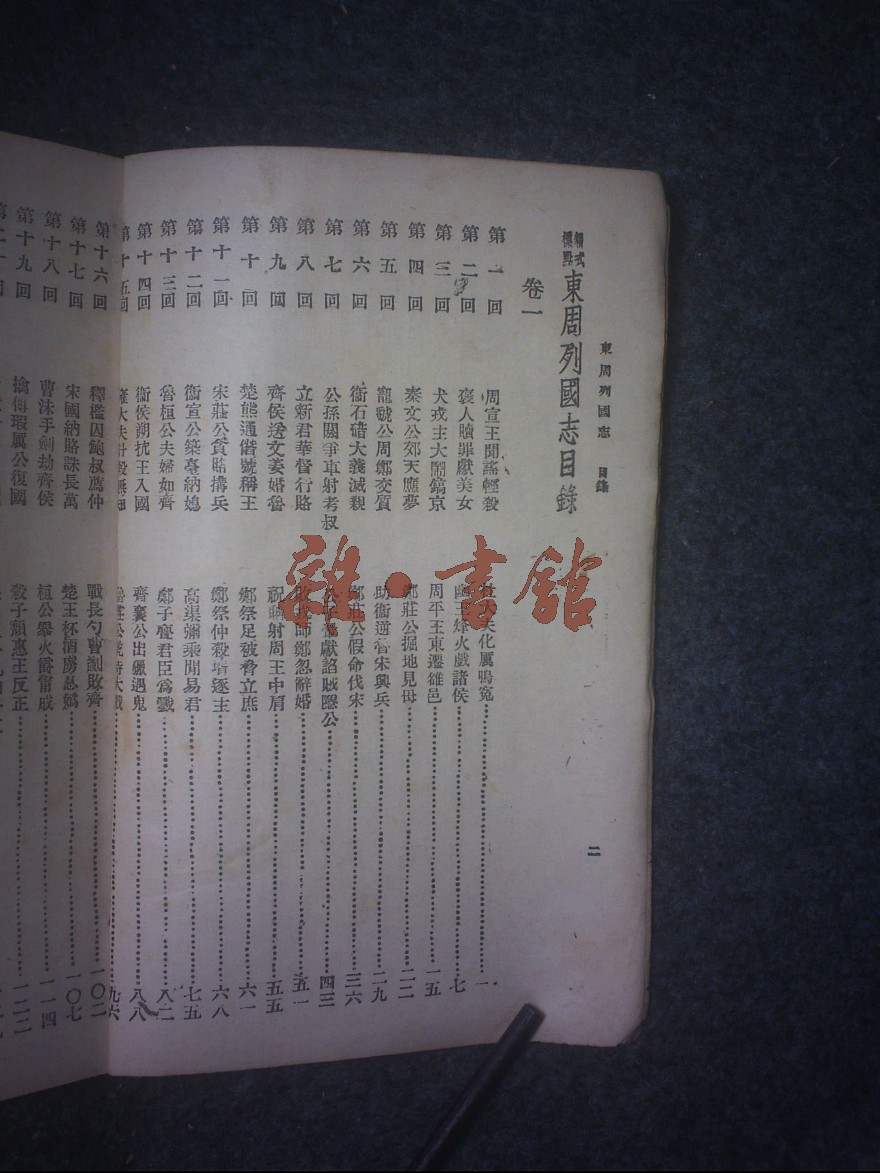 東周列國志 目錄
二
新式標點 東周列國志目錄
卷一
第一回 周宣王聞謠輕殺 杜大夫化厲鳴冤 一
第二回 褒人贖罪獻美女 幽王烽火戲諸侯 七
第三回 犬戎主大鬧鎬京 周平王東遷雒邑 一五
第四回 秦文公郊天應夢 鄭莊公掘地見母 二二
第五回 寵虢公周鄭交質 助衞逆魯宋興兵 二九
第六回 衞石碏大義滅親 鄭莊公假命伐宋 三六
第七回 公孫閼爭車射考叔 公子翬獻諂賊隱公 四三
第八回 立新君華督行賂 敗戎師鄭忽辭婚 五一
第九回 齊侯送文姜婚魯 祝聃射周王中肩 五五
第十回 楚熊通僭號稱王 鄭祭足被脅立庶 六一
第十一回 宋莊公貪賂搆兵 鄭祭仲殺壻逐主 六八
第十二回 衞宣公築臺納媳 高渠彌乘閒易君 七五
第十三回 魯桓公夫婦如齊 鄭子亹君臣爲戮 八二
第十四回 衞侯朔抗王入國 齊襄公出獵遇鬼 八八
第十五回 雍大夫計殺無知 魯莊公乾時大戰 九六
第十六回 釋檻囚鮑叔薦仲 戰長勺曹劌敗齊 一〇二
第十七回 宋國納賂誅長萬 楚王杯酒虜息嬀 一〇七
第十八回 曹沫手劍劫齊侯 桓公舉火爵甯戚 一一四
第十九回 擒傅瑕厲公復國 殺子頹惠王反正 一二二
雜·書館